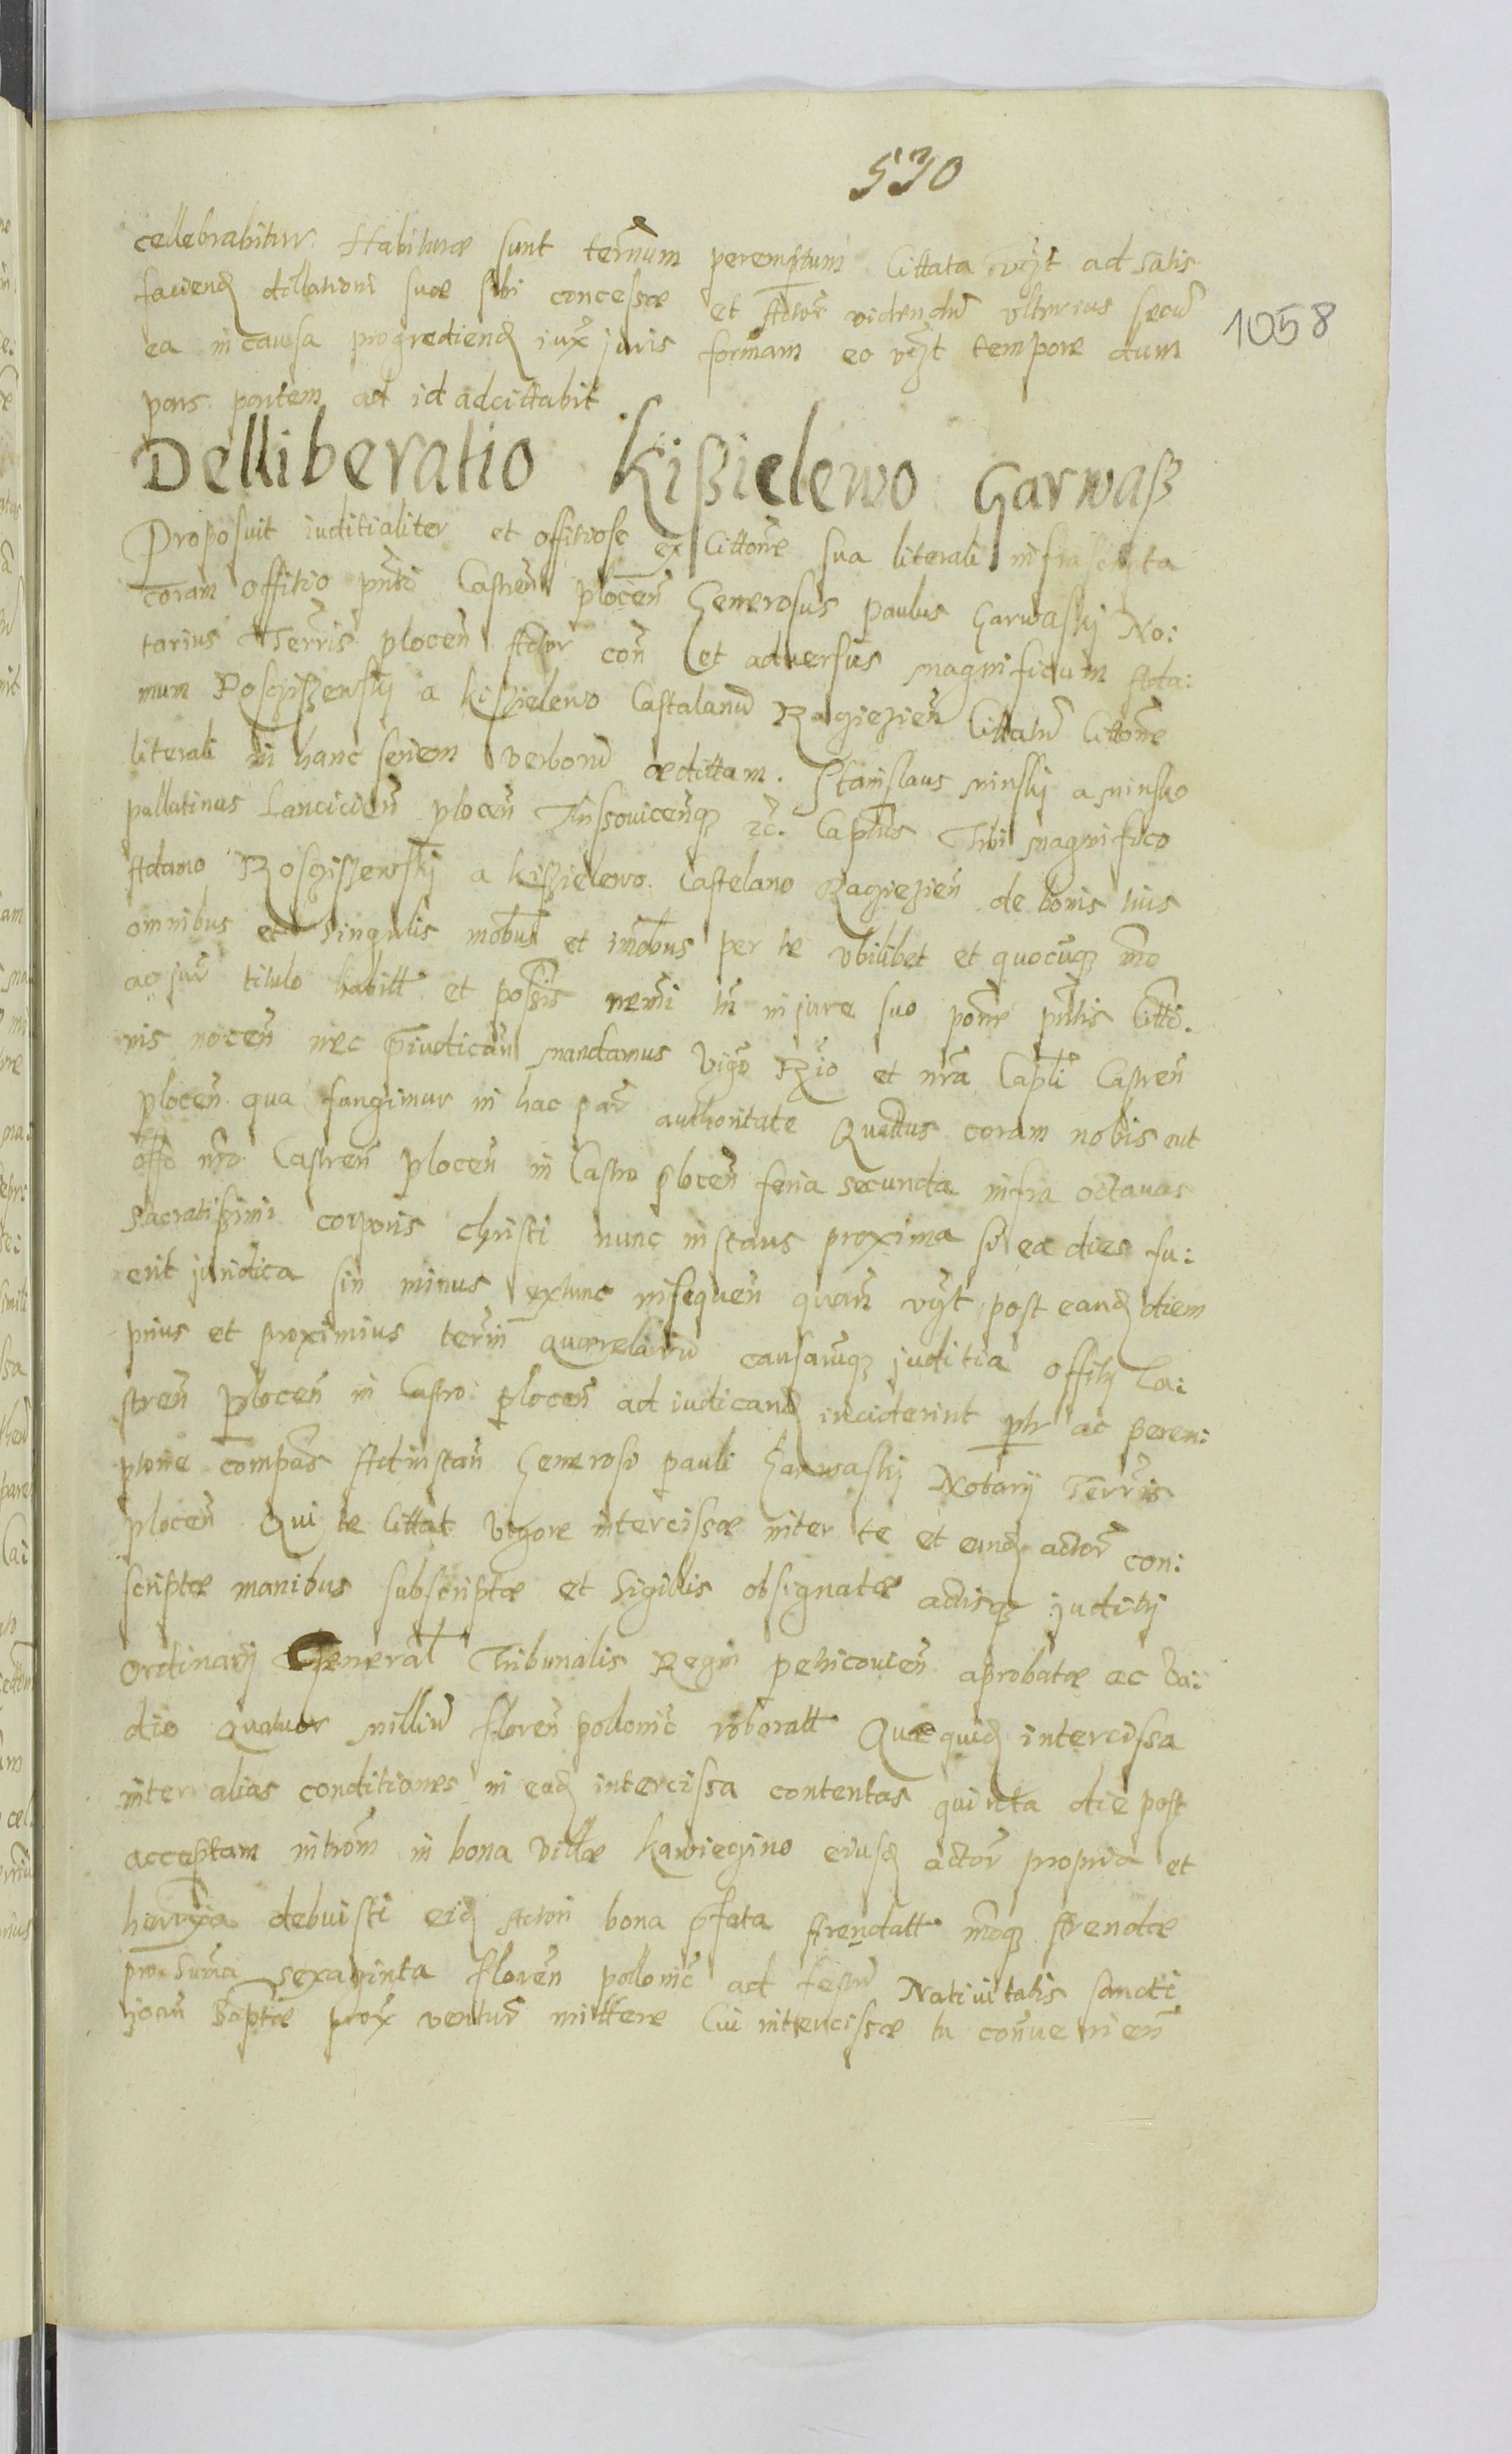 530
1058
cellebrabitur Habituræ sunt ternum peremptum Cittata vigt ad satis
faciend dillationi suæ sibi concessæ et Actor videndū vlterius secū
ea in causa progrediend iux juris formam eo vigt tempore dum
pars partem ad id adcittabit
Delliberatio Kißielewo Garwaß
Proposuit iuditialiter et offitiose ex Cittone sua literali infrascripta
coram offitio pnti Castren plocen Generosus Paulus Garwaskj No:
tarius Terris plocen Actor con et aduersus magnificum Ada:
mum Rosciszewskj a Kiszielewo Castalanū Raziezien Cittatū Cittone
literali in hanc seriem verborū ædittam. Stanislaus Minskj a Minsko
pallatinus Lancicien plocen Lissouicenq zc. Captus Tibi Magnifico
Adamo Rosciszewskj a Kiszielewo Castelano Raziezien de bonis tuis
omnibus et singulis mobus et imobus per te vbilibet et quocūq mo
ac jure titulo habitt et possis nemi tn in jure suo pone pntis Citto:
nis nocen nec priudican mandamus vigo Rio et nra Capli Castren
plocen qua fungimur in hac par authoritate Quattus coram nobis eut
offo nro Castren plocen in Castro plocen feria secunda infra octauas
Sacratissimi corporis Christi nunc instans proxima si ea dies fu:
erit juridica sin minus extunc insequen quam vigt post eand diem
prius et proximius termin quærelarū causarūq juditia offitij Ca:
stren plocen in Castro plocen ad iudicand inciderint plr ac perem:
ptorie compas Ad instan Generosi pauli Garwaskj Notarij Terris
plocen Qui te Cittat Vigore intercissæ inter te et eund actor con:
scriptæ manibus subscriptæ et Sigillis obsignatæ actisq juditij
Ordinarij General Tribunalis Regni petricouien aprobatæ ac va:
dio quatuor millium floren pollonic roboratt Quæquid intercissa
inter alias conditiones in ead intercissa contentas quinta die post
acceptam introm in bona villæ Karwiegino eiusd actor propria et
herria debuisti eid Actori bona pfata Arendatt moq Arendæ
pro suma sexaginta floren pollonic ad festū Natiuitatis Sancti
Joan Baptæ prox ventur mittere Cui intercissæ tu conuenien